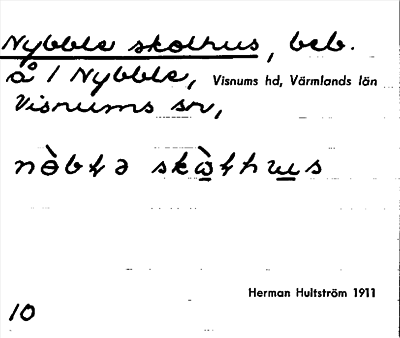 Nybble skolhus, beb.
å 1 Nybble, Visnums hd, Värmlands län
Visnums sn,
skὰɫhus
Herman Hultström 1911
10